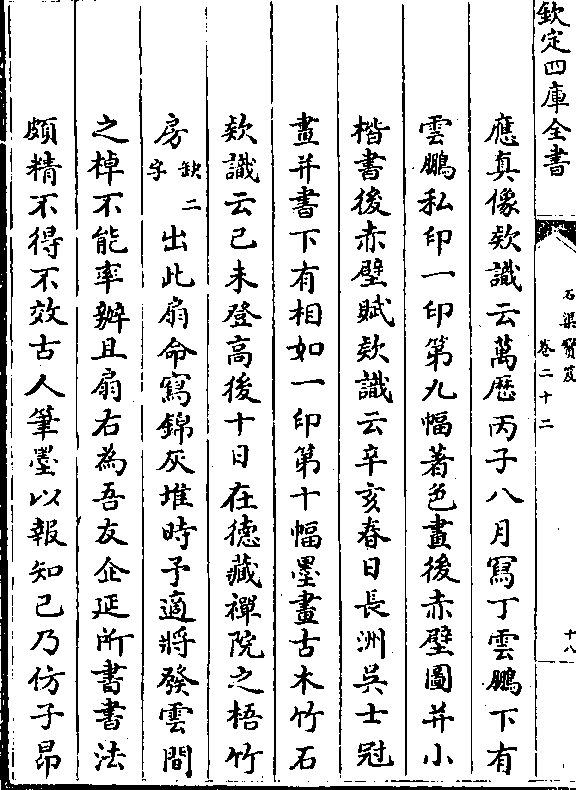 欽定四庫全書
石渠寶笈
卷二十二
十八
應真像欵識云萬歴丙子八月寫丁雲鵬下有
雲鵬私印一印第九幅著色畫後赤壁圖并小
楷書後赤壁賦欵識云辛亥春日長洲吳士冠
畫并書下有相如一印第十幅墨畫古木竹石
欵識云己未登高後十日在德藏禪院之梧竹
房缺二字出此扇命寫錦灰堆時予適將發雲間
之棹不能率辦且扇右為吾友企延所書書法
頗精不得不效古人筆墨以報知己乃仿子昂